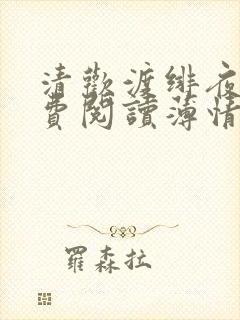 清歡渡緋夜
費閱讀薄情
羅森拉